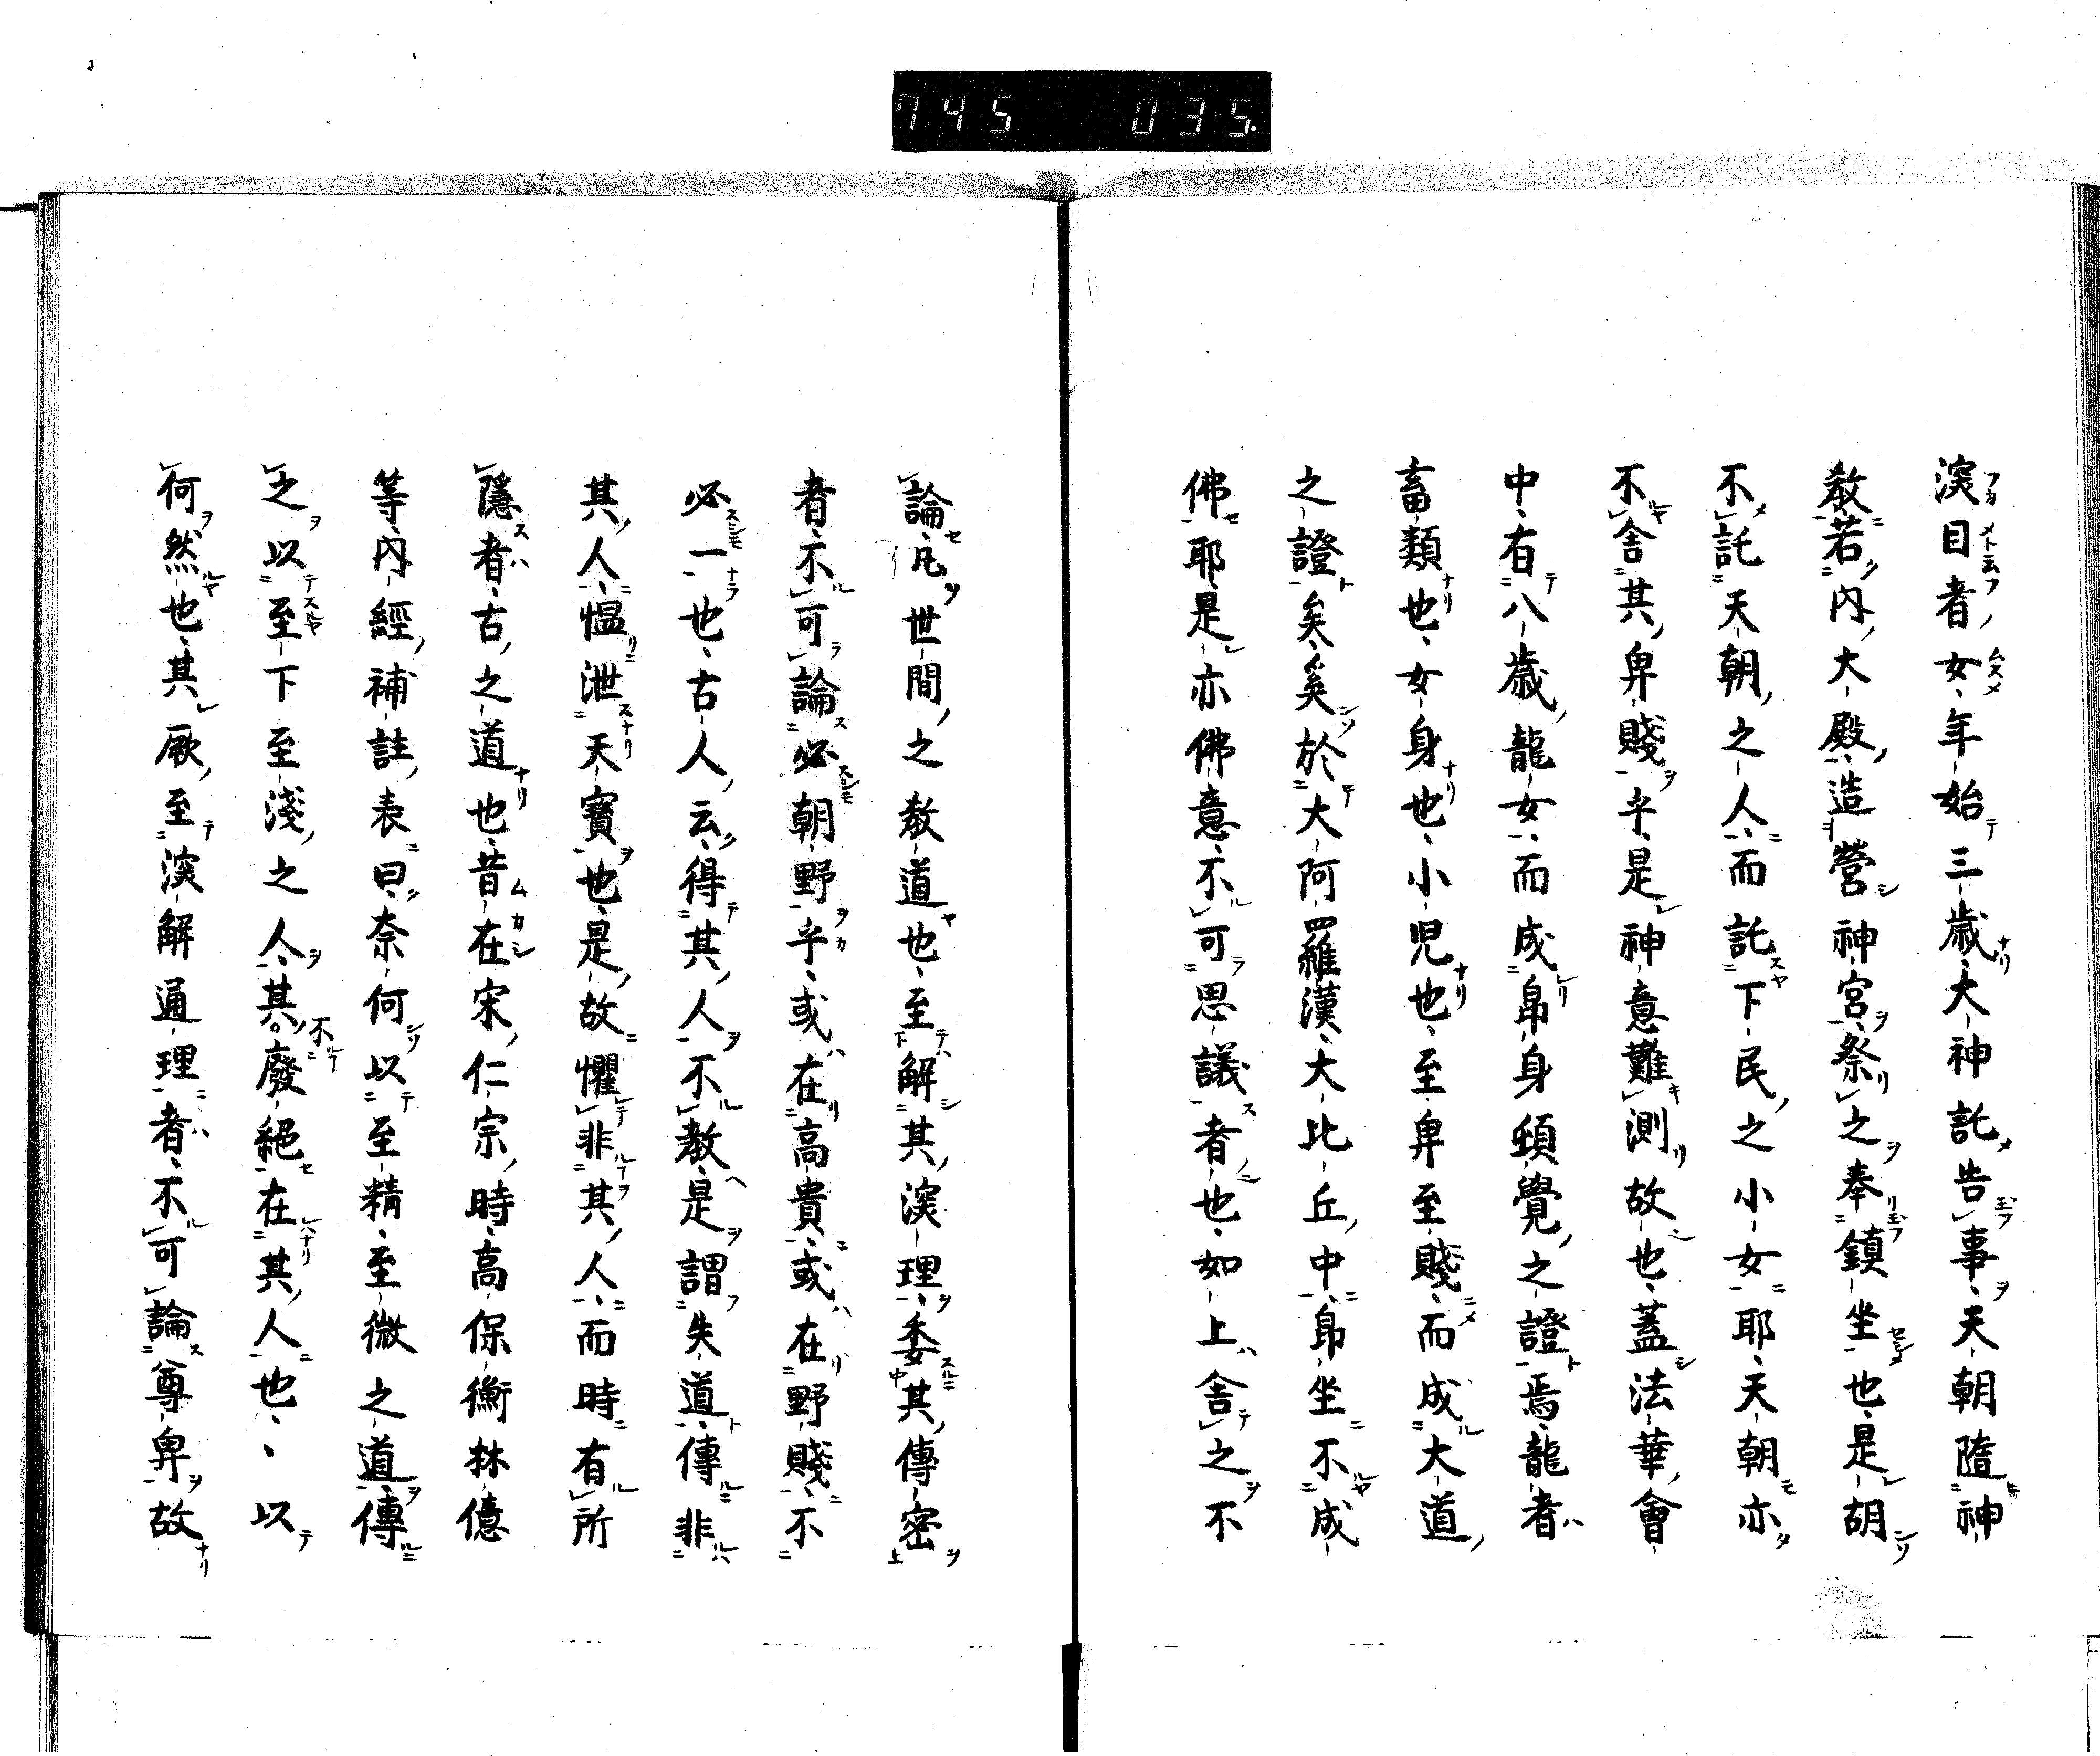 745 035.
深目者女年始三歳大神託告事天朝隨神
教若内大殿造營神宮祭之奉鎮坐也是胡
不託天朝之人而託下民之小女耶天朝亦
不舎其卑賤乎是神意難測故也蓋法華會
中有八歳龍女而成即身頓覺之證焉龍者
畜類也女身也小児也至卑至賤而成大道
之證矣奚於大阿羅漢大比丘中即坐不成
佛耶是亦佛意不可思議者也如上舎之不
論凡世間之教道也至解其深理委其傳密
者不可論必朝野乎或在高貴或在野賤不
必一也古人云得其人不教是謂失道傳非
其人慍泄天寶也是故懼非其人而時有所
隱者古之道也昔在宋仁宗時高保衡林億
等内經補註表曰奈何以至精至微之道傳
之以至下至淺之人其不廢絕在其人也、以
何然也其厥至深解通理者不可論尊卑故